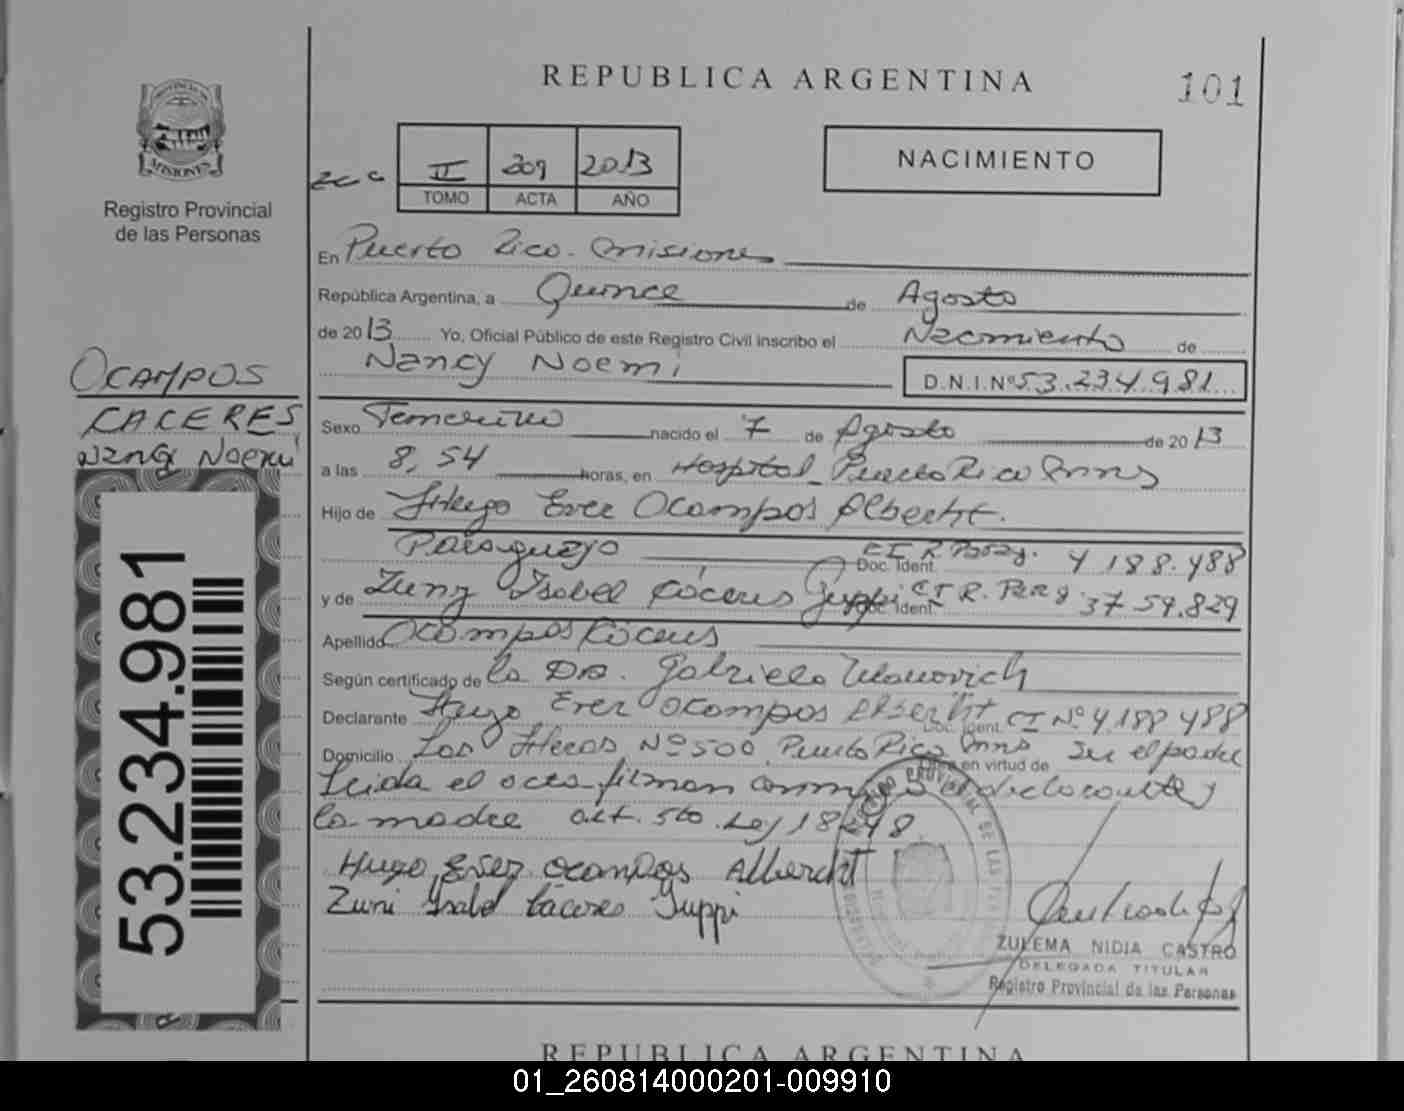 REPUBLICA ARGENTINA
101
PROVINCIA DE
MISIONES
Registro Provincial
de las Personas
II 209 2013
TOMO ACTA AÑO
NACIMIENTO
En Puerto Rico. Misiones
República Argentina, a Quince de Agosto
de 2013 Yo, Oficial Público de este Registro Civil inscribo el Nacimiento de
Nancy Noemi
D.N.I.Nº 53.234.981
OCAMPOS
CACERES
Nancy Noemi
Sexo Femenino nacido el 7 de Agosto de 2013
a las 8,54 horas, en Hospital Puerto Rico Mnes
Hijo de Hugo Ever Ocampos Alberht.
Paraguayo C I R Parag. Doc. Ident. 4 188.488
y de Zuny Isabel Cáceres Juppi C I R. Parag. Doc. Ident. 3759.829
Apellido Ocampos Cáceres
Según certificado de la Dra. Gabriela
Declarante Hugo Ever Ocampos Alberht Doc. Ident. CI Nº 4.188 488
Domicilio Los Heros Nº 500 Puerto Rico Mns Obra en virtud de Ser el padre
Leida el acta firman conmigo el declarante y
la madre alt. 5to. Ley 18248
Hugo Ever Ocampos Alberdht
Zuni Isabel Cáceres Juppi
ZULEMA NIDIA CASTRO
DELEGADA TITULAR
Registro Provincial de las Personas
53.234.981
REPUBLICA ARGENTINA
01_260814000201-009910